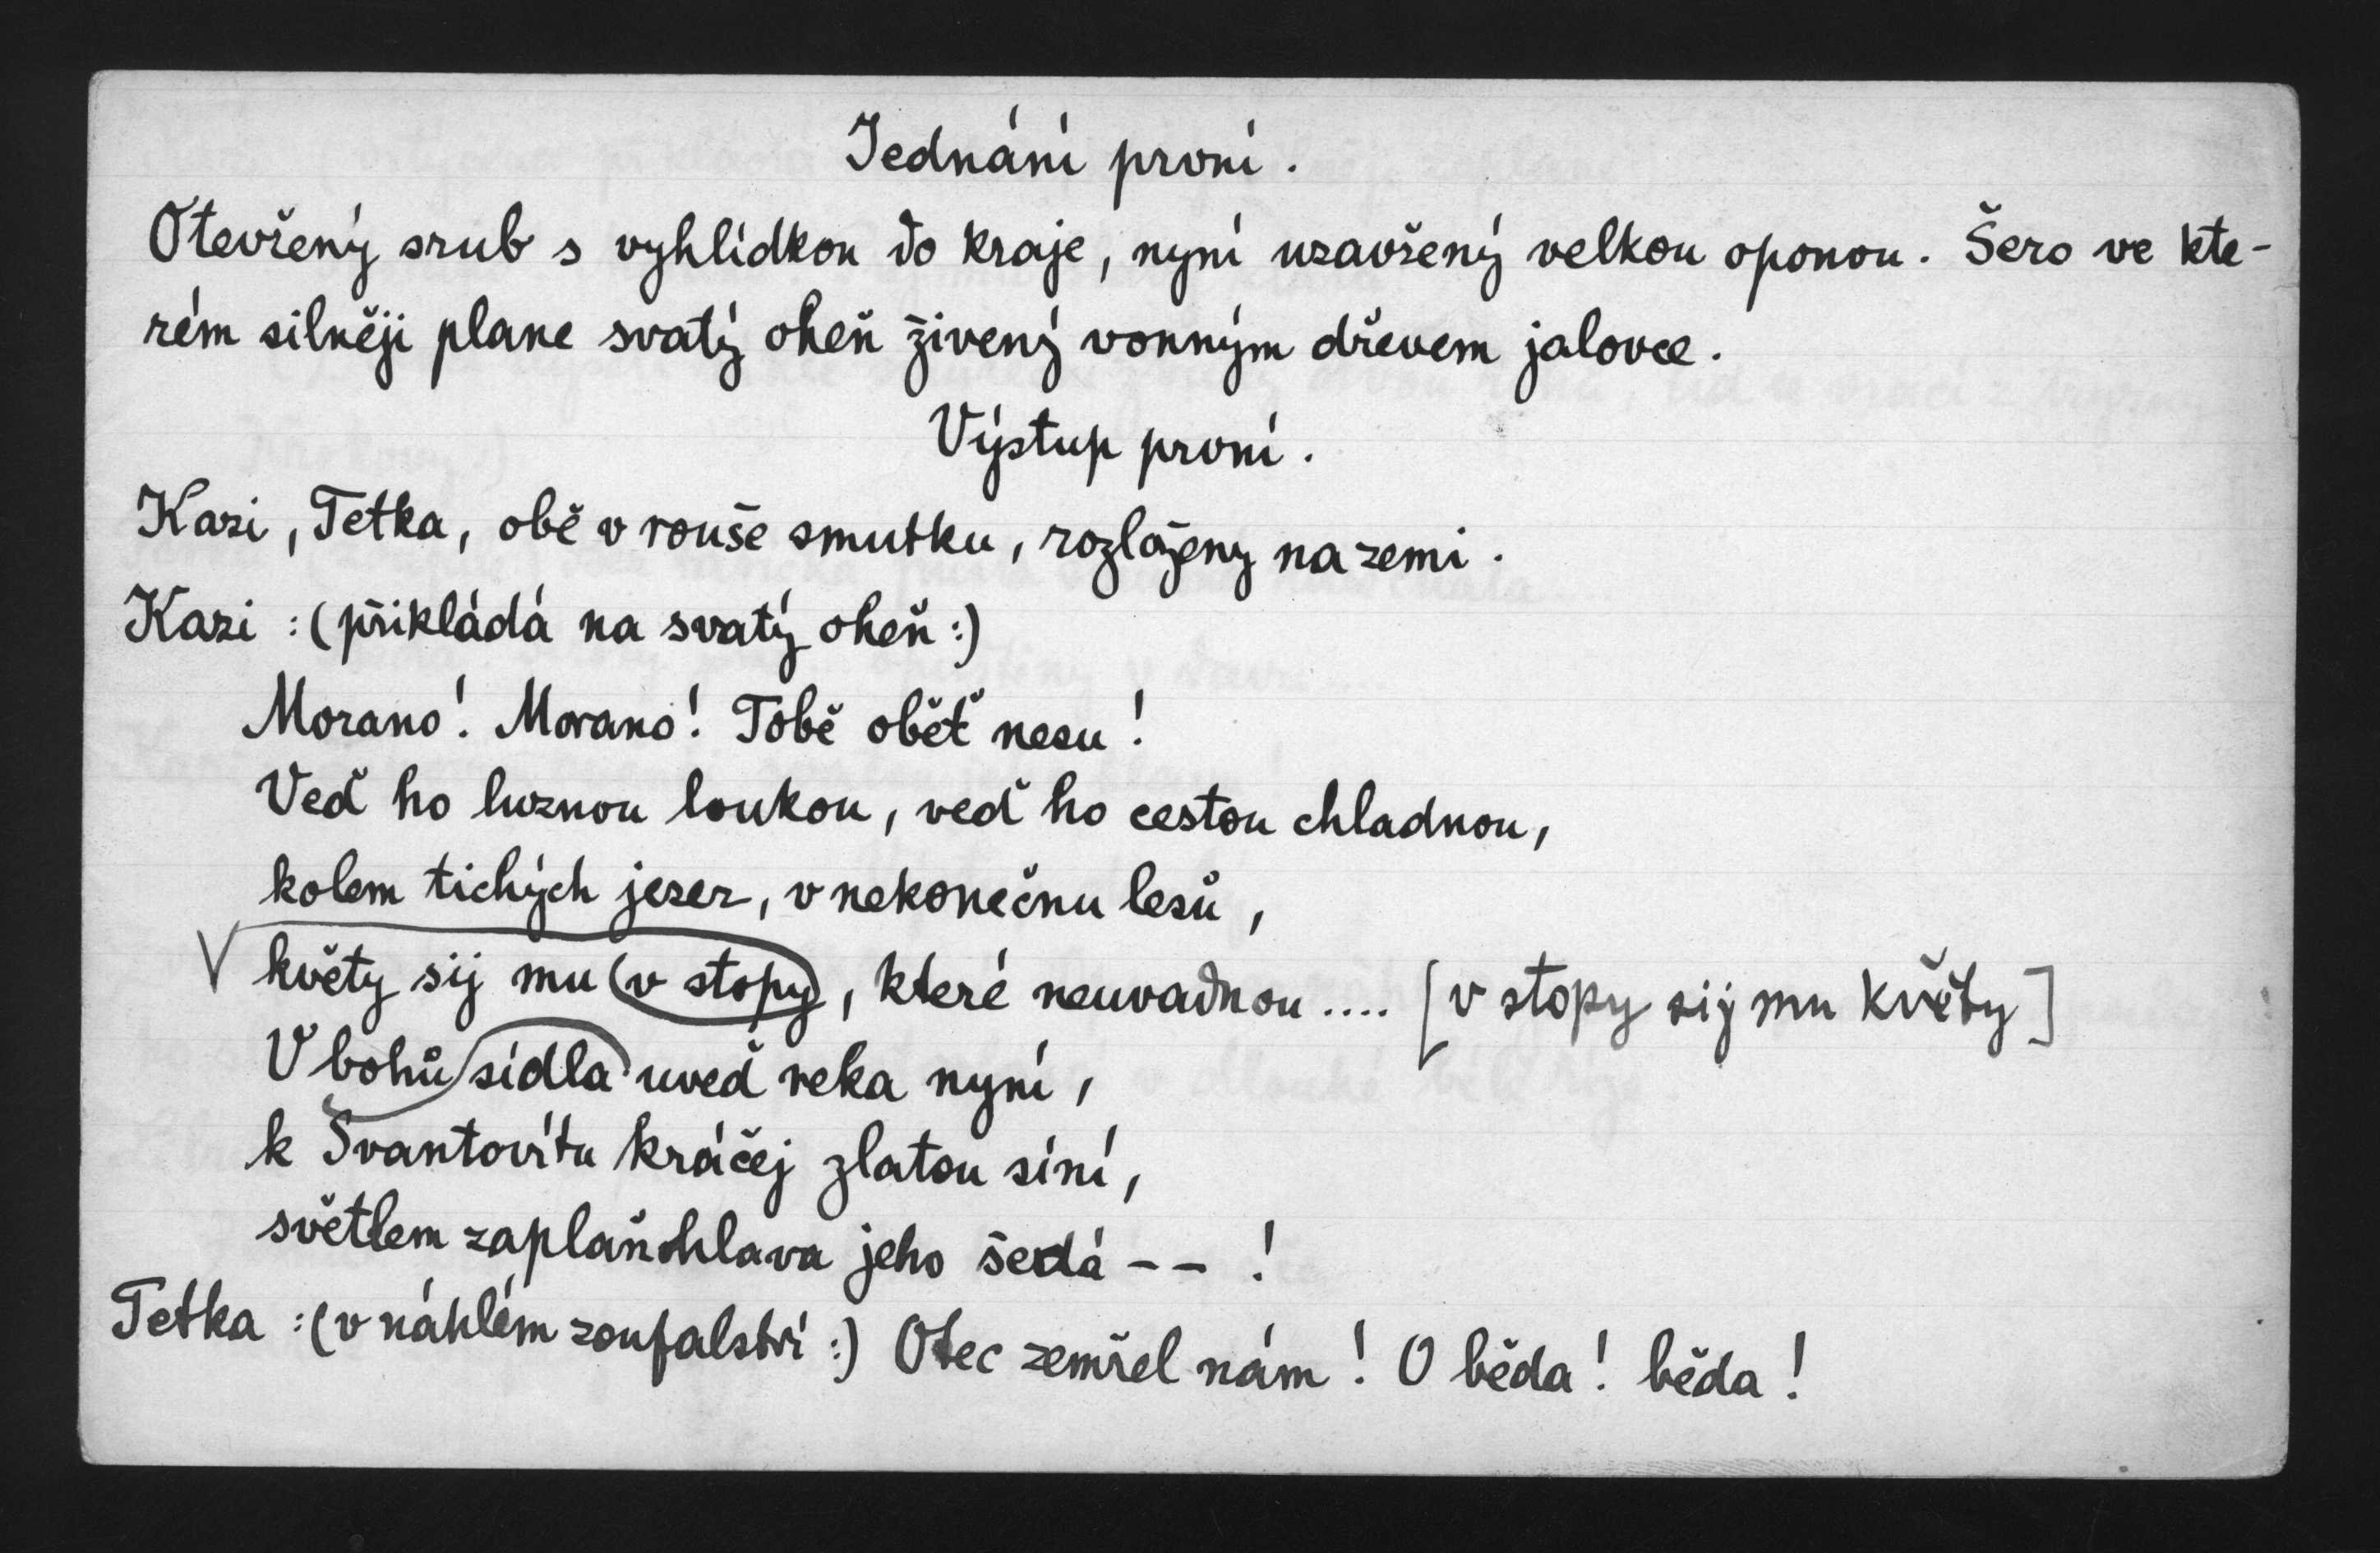 Jednání první.
Otevřený srub s vyhlídkou do kraje, nyní uzavřený velkou oponou. Šero ve kte-
rém silněji plane svatý oheň živený vonným dřevem jalovce.
Výstup první.
Kazi, Tetka, obě v rouše smutku, rozloženy na zemi.
Kazi :(přikládá na svatý oheň:)
Morano! Morano! Tobě oběť nesu!
Veď ho luznou loukou, veď ho cestou chladnou,
kolem tichých jezer, v nekonečnu lesů,
květy sij mu v stopy, které neuvadnou .... [v stopy sij mu květy]
V bohů sídla uveď reka nyní,
k Svantovítu kráčej zlatou síní,
světlem zaplaň hlava jeho šedá -- !
Tetka :(v náhlém zoufalství:) Otec zemřel nám! O běda! běda!